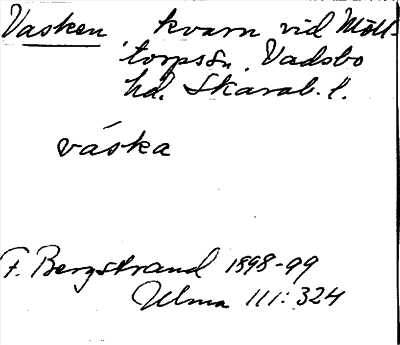 Vasken, kvarn vid Möll-
torpssn, Vadsbo
hd. Skarab. l.
váska
F. Bergstrand 1898-99
Ulma 111:324